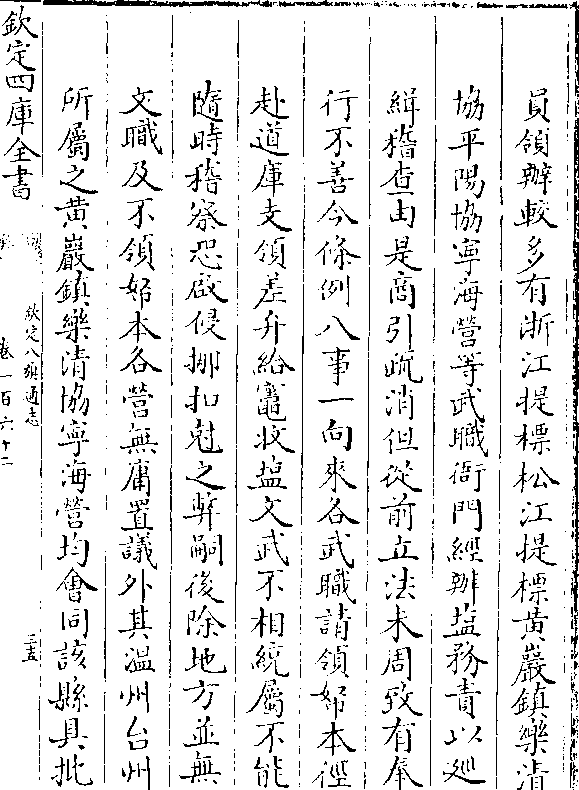 員領辦較多有浙江提標松江提標黄巖鎮樂清
協平陽協寧海營等武職衙門經辦塩務責以廵
緝稽查由是商引疏消但從前立法未周致有奉
行不善今條例八事一向來各武職請領帑本徑
赴道庫支領差弁給竈收塩文武不相統屬不能
隨時稽察恐啟侵挪扣尅之弊嗣後除地方並無
文職及不領帑本各營無庸置議外其温州台州
所屬之黄巖鎮樂清協寧海營均會同該縣具批
欽定四庫全書
欽定八旗通志
卷一百六十二
三五